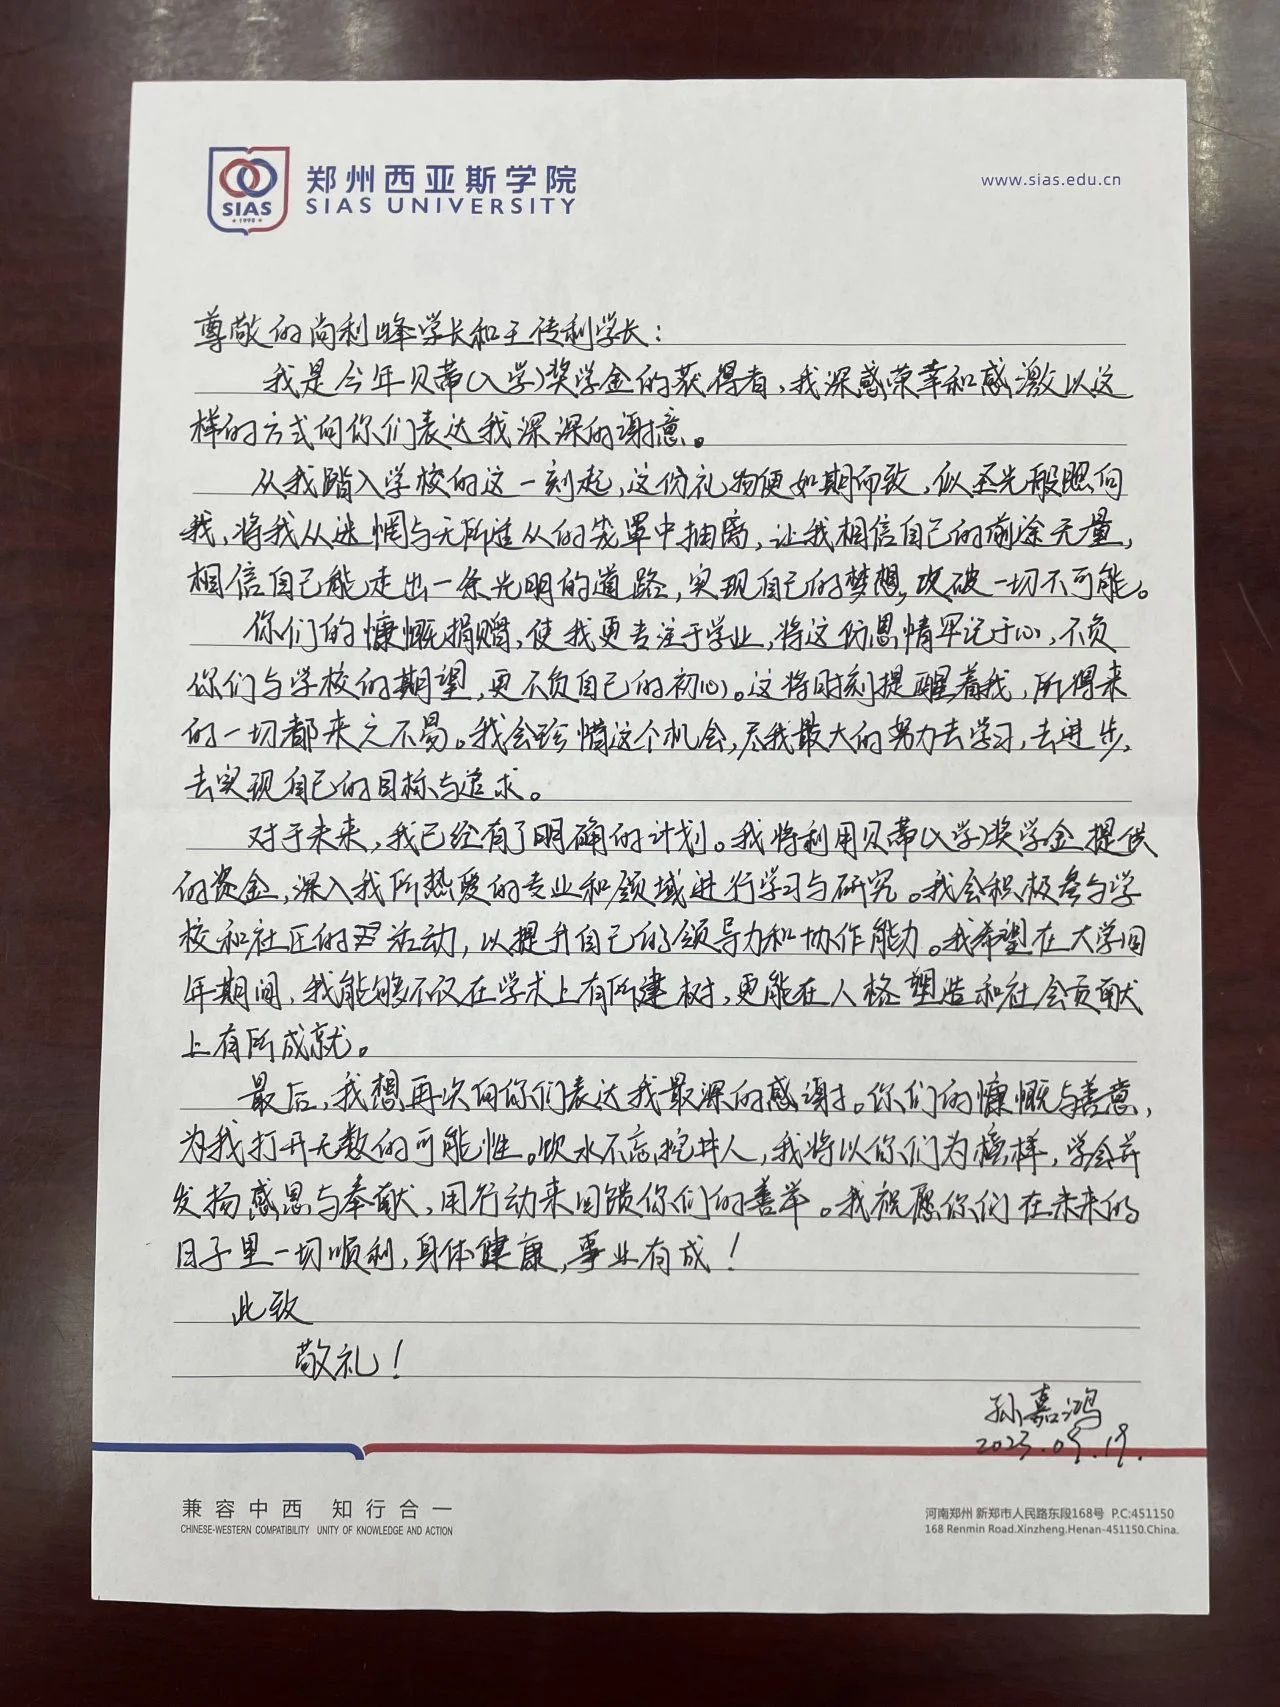 SIAS
1998
郑州西亚斯学院
SIAS UNIVERSITY
www.sias.edu.cn
尊敬的尚利峰学长和王传利学长：
我是今年贝蒂(入学)奖学金的获得者，我深感荣幸和感激以这
样的方式向你们表达我深深的谢意。
从我踏入学校的这一刻起，这份礼物便如期而致，似圣光般照向
我，将我从迷惘与无所适从的笼罩中抽离，让我相信自己的前途无量，
相信自己能走出一条光明的道路，实现自己的梦想，攻破一切不可能。
你们的慷慨捐赠，使我更专注于学业，将这份恩情牢记于心，不负
你们与学校的期望，更不负自己的初心。这将时刻提醒着我，所得来
的一切都来之不易。我会珍惜这个机会，尽我最大的努力去学习，去进步，
去实现自己的目标与追求。
对于未来，我已经有了明确的计划。我将利用贝蒂(入学)奖学金提供
的资金，深入我所热爱的专业和领域进行学习与研究。我会积极参与学
校和社区的活动，以提升自己的领导力和协作能力。我希望在大学四
年期间，我能够不仅在学术上有所建树，更能在人格塑造和社会贡献
上有所成就。
最后，我想再次向你们表达我最深的感谢。你们的慷慨与善意，
为我打开无数的可能性。饮水不忘挖井人，我将以你们为榜样，学会并
发扬感恩与奉献，用行动来回馈你们的善举。我祝愿你们在未来的
日子里一切顺利，身体健康，事业有成！
此致
敬礼！
孙嘉鸿
2023.09.19.
兼容中西 知行合一
CHINESE-WESTERN COMPATIBILITY UNITY OF KNOWLEDGE AND ACTION
河南郑州 新郑市人民路东段168号 P.C:451150
168 Renmin Road.Xinzheng.Henan-451150.China.